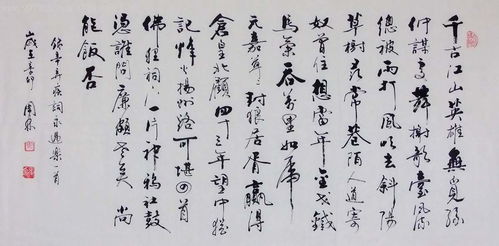 千古江山英雄無覓孫
仲謀處舞榭歌臺風流
總被雨打風吹去斜陽
草樹尋常巷陌人道寄
奴曾住想當年金戈鐵
馬氣吞萬里如虎
元嘉草草封狼居胥贏得
倉皇北顧四十三年望中猶
記烽火揚州路可堪回首
佛狸祠下一片神鴉社鼓
憑誰問廉頗老矣尚
能飯否
辛弃疾詞永遇樂一首
歲在辛卯 周